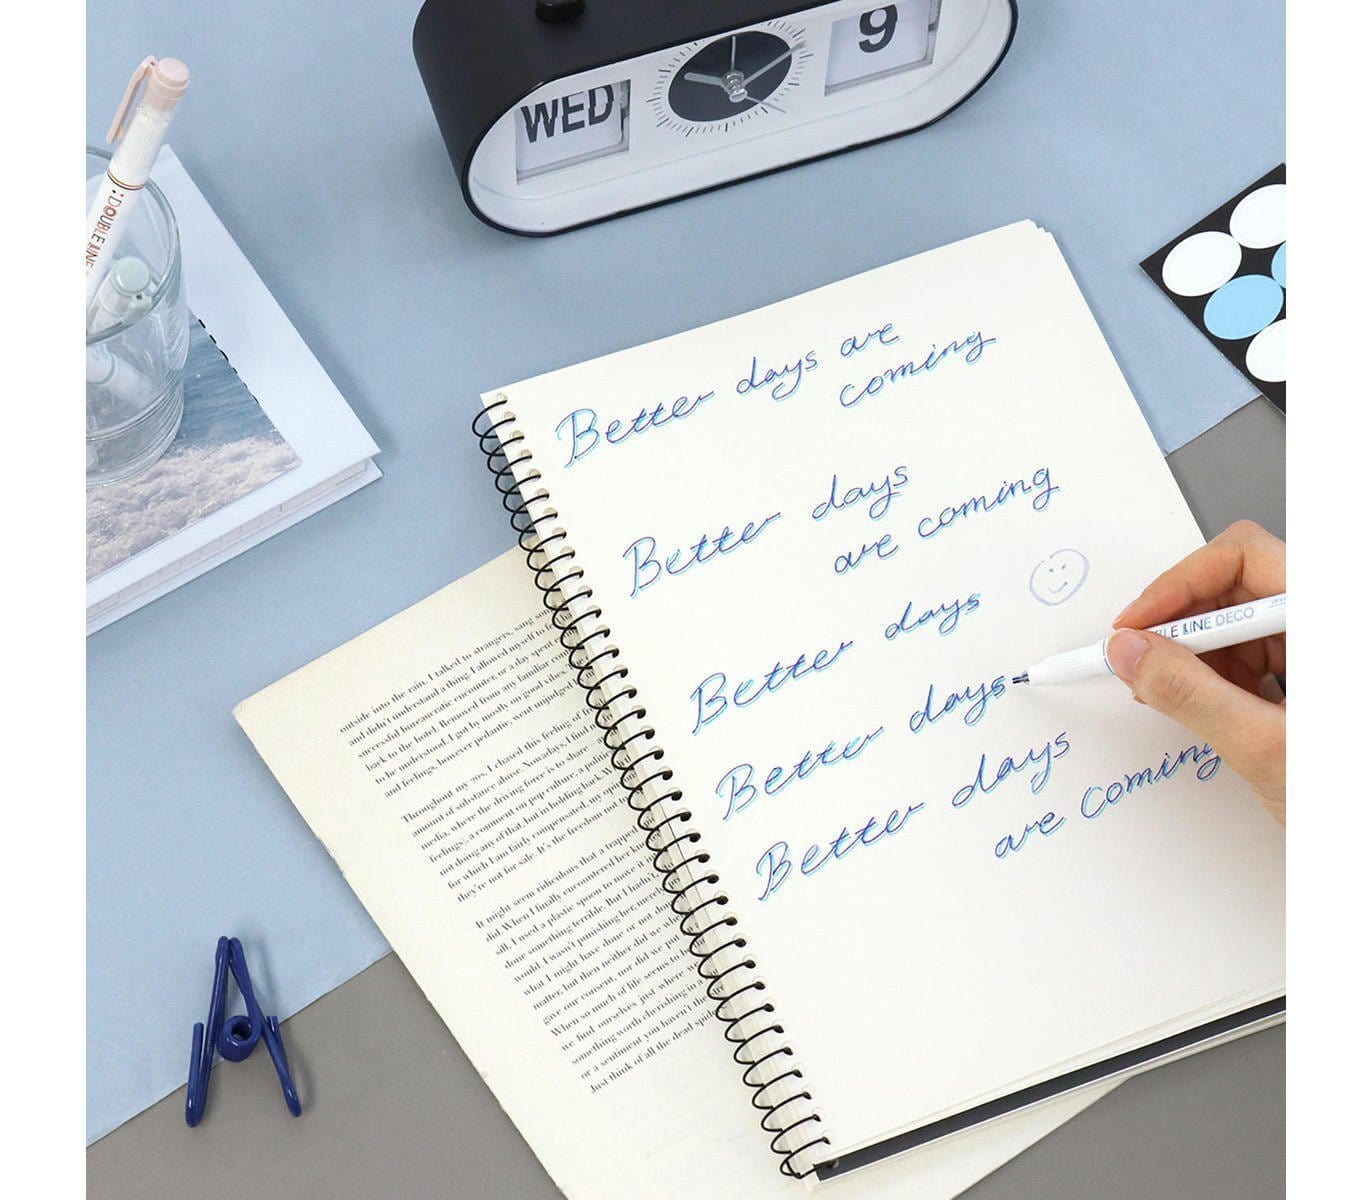 WED
9
:DOUBLE LINE
Better days are
coming
Better days
are coming
Better days
Better days
Better days
are coming
LINE DECO
outside into the rain. I talked to strangers, sang
and didn't understand a thing. I allowed myself to
successful bureaucratic encounter, or a day spent
back to the hotel. Removed from any familiar
to be understood, I got by mostly on good vibes.
and feelings, however pedantic, went unjudged
Throughout my 20s, I chased this feeling of
amount of substance abuse. Nowadays, I find
media, where the driving force is to share
feelings), a comment on pop culture, a
not doing any of that, but in holding back. W
for which I am fairly compensated, my
they're not for sale. It's the freedom not
It might seem ridiculous that a trapped
did. When I finally encountered her
sill, I used a plastic spoon to move it
done something terrible. But I hadn't
would. I wasn't punishing her, merely
what I might have done or not
matter, but then neither did we
gave our consent, nor did we
When so much of life seems to
we find ourselves just where
something worth cherishing in a
or a sentiment you haven't the
Just think of all the dead